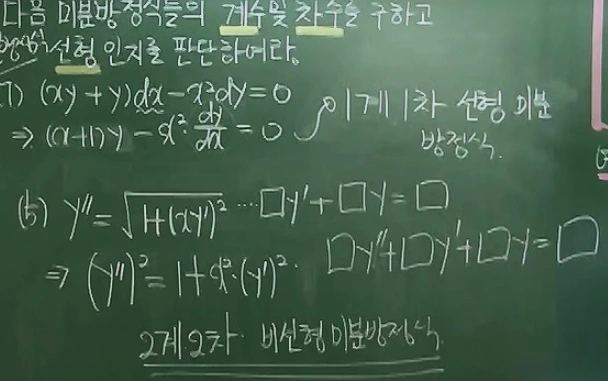 다음 미분방정식들의 계수및 차수를 구하고
선형 인지를 판단하여라.
1) (xy + y)dx - x²dy = 0
⇒ (x+1)y - x²·dy/dx = 0 1계 1차 선형 미분
방정식.
(5) y'' = √(1+(xy')²) ··· □y' + □y = □
⇒ (y'')² = 1 + x²·(y')². □y''+□y'+□y = □
2계 2차 비선형 미분방정식